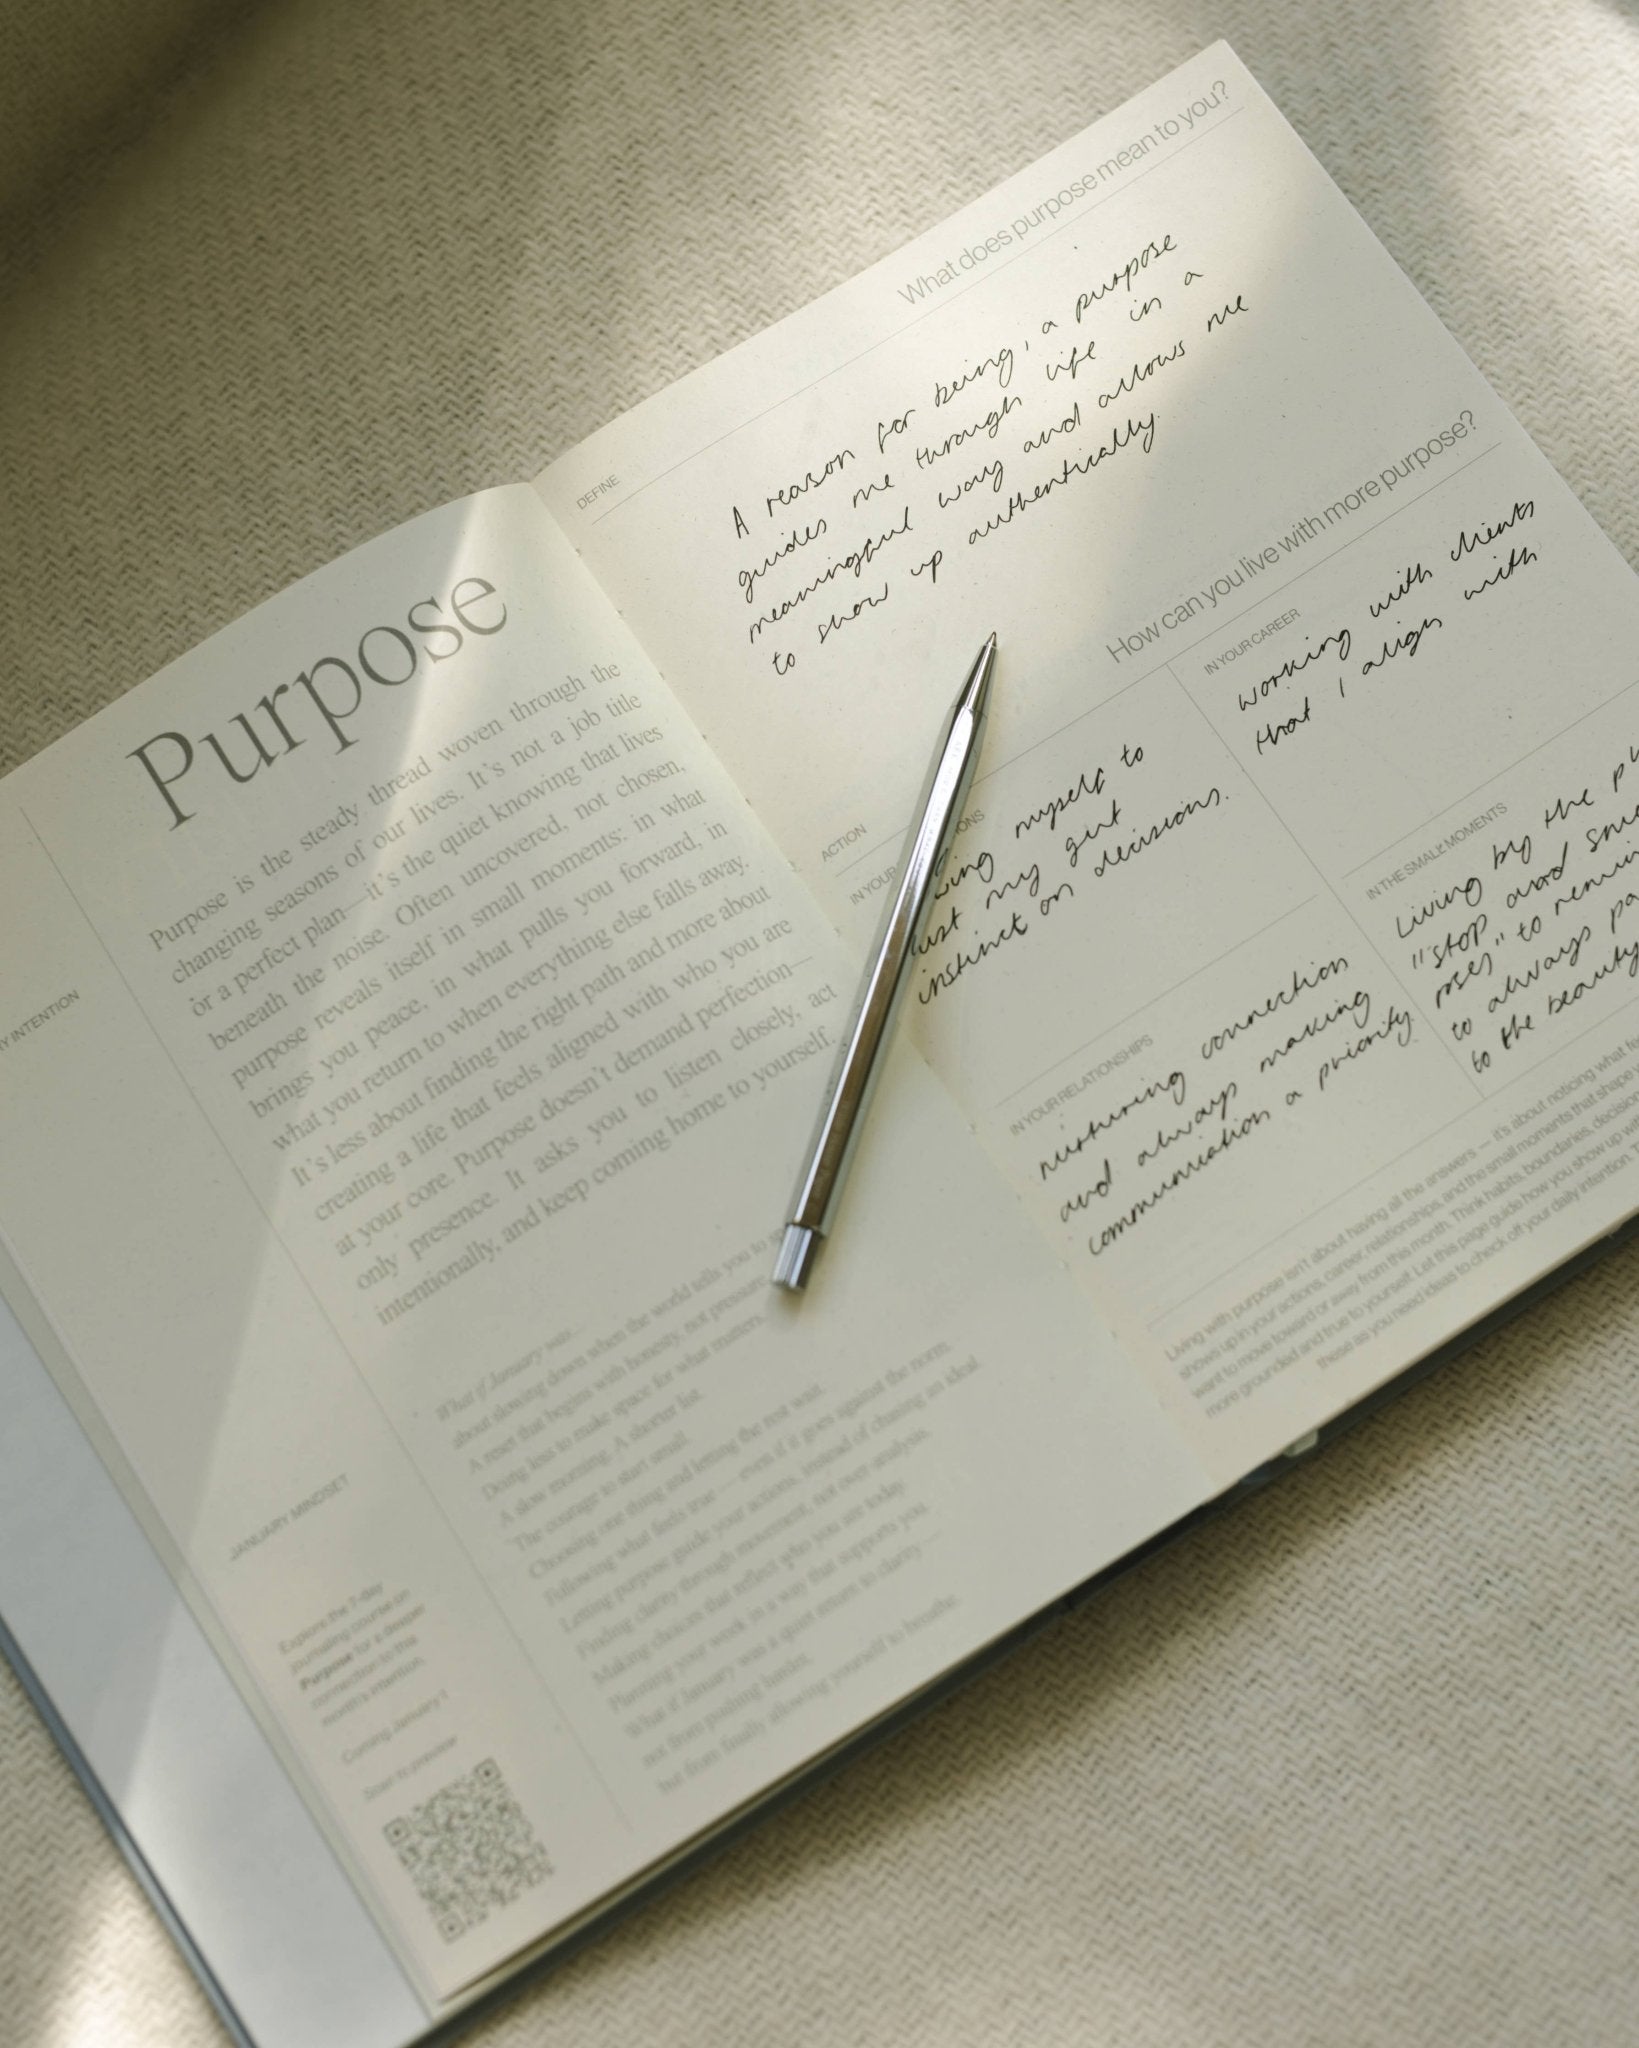 Purpose
Purpose is the steady thread woven through the
changing seasons of our lives. It's not a job title
or a perfect plan—it's the quiet knowing that lives
beneath the noise. Often uncovered, not chosen,
purpose reveals itself in small moments: in what
brings you peace, in what pulls you forward, in
what you return to when everything else falls away.
It's less about finding the right path and more about
creating a life that feels aligned with who you are
at your core. Purpose doesn't demand perfection—
only presence. It asks you to listen closely, act
intentionally, and keep coming home to yourself.
INTENTION
JANUARY MINDSET
What if January was...
about slowing down when the world tells you to
A reset that begins with honesty, not pressure.
Doing less to make space for what matters.
A slow morning. A shorter list.
The courage to start small.
Choosing one thing and letting the rest wait.
Following what feels true — even if it goes against the norm.
Letting purpose guide your actions, instead of chasing an ideal.
Finding clarity through movement, not over-analysis.
Making choices that reflect who you are today.
Planning your week in a way that supports you.
What if January was a quiet return to clarity —
not from pushing harder,
but from finally allowing yourself to breathe.
Explore the 7-day
journaling course on
Purpose for a deeper
connection to this
month's intention.
Coming January 1
Scan to preview
What does purpose mean to you?
DEFINE
A reason for being, a purpose
guides me through life in a
meaningful way and allows me
to show up authentically.
How can you live with more purpose?
ACTION
IN YOUR
myself to
my gut
instinct on decisions.
IN YOUR CAREER
working with clients
that I align with
IN YOUR RELATIONSHIPS
nurturing connection
and always making
communication a priority
IN THE SMALL MOMENTS
Living by the
"stop and
roses" to
to always
to the beauty
Living with purpose isn't about having all the answers — it's about noticing what
shows up in your actions, career, relationships, and the small moments that shape
want to move toward or away from this month. Think habits, boundaries,
more grounded and true to yourself. Let this page guide how you show up
those as you need ideas to check off your daily intention.